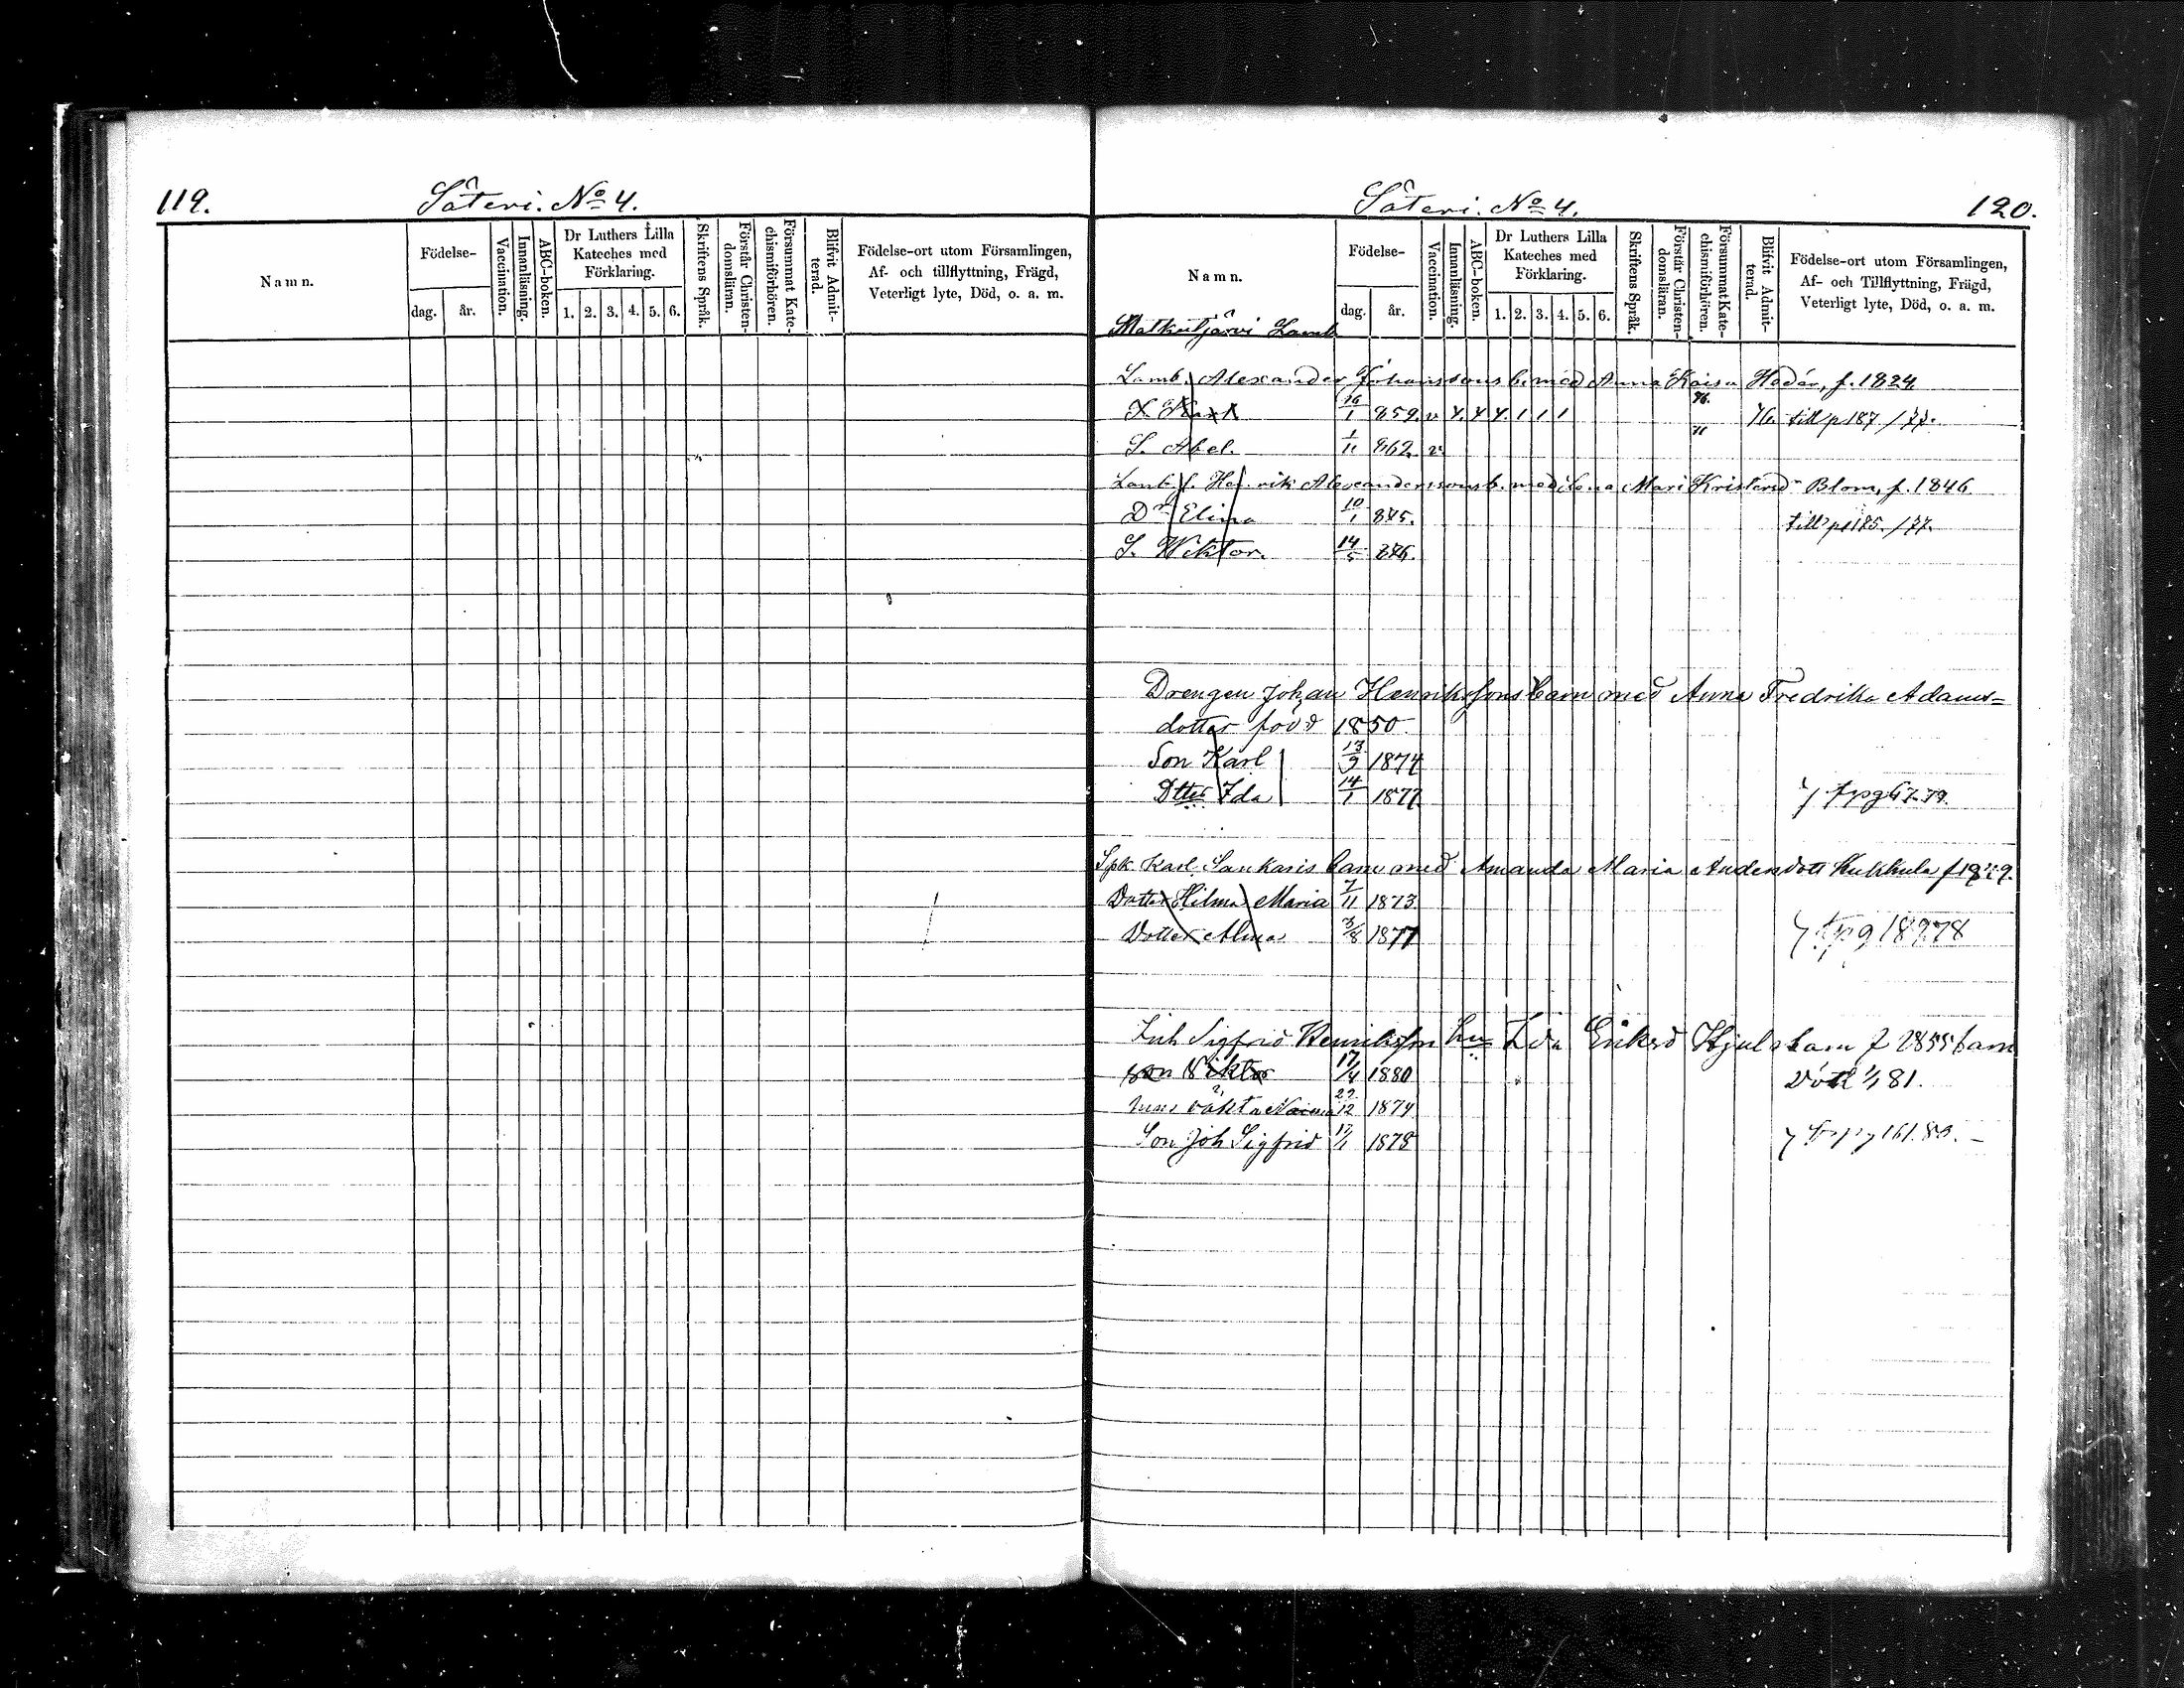 119. Såteri. No 4.
Namn. Födelse- dag. år. Vaccination. Innanläsning. ABC-boken. Dr Luthers Lilla Kateches med Förklaring. 1. 2. 3. 4. 5. 6. Skriftens Språk. Förstår Christendomsläran. Försummat Katechismiförhören. Blifvit Admitterad. Födelse-ort utom Församlingen, Af- och tillflyttning, Frägd, Veterligt lyte, Död, o. a. m.
Såteri. No 4. 120.
Namn. Födelse- dag. år. Vaccination. Innanläsning. ABC-boken. Dr Luthers Lilla Kateches med Förklaring. 1. 2. 3. 4. 5. 6. Skriftens Språk. Förstår Christendomsläran. Försummat Katechismiförhören. Blifvit Admitterad. Födelse-ort utom Församlingen, Af- och Tillflyttning, Frägd, Veterligt lyte, Död, o. a. m.
Matkutjärvi Lamb
Lamb. Alexander Johanssons b. med Anna Kaisa Hedér, f. 1824
16/1 859. v 76. till p 187 /77.
S. Abel. 1/11 862. v
Lamb. f. Henrik Alexanderssons b. med Lena Mari Kristersd Blom, f. 1846
Dr Elina 10/1 875. till p 185. /77.
S. Wiktor. 14/5 876.
Drengen Johan Henrikssons barn med Anna Fredrika Adams=
dotter född 1850
Son Karl 13/9 1874
Dtter Ida 14/1 1877
Spk Karl Sankaris barn med Amanda Maria Andersdott Kukkula
Dotter Hilma Maria 7/11 1873
Dotter Alma 3/8 1877
Inh Sigfrid Henriksson hu Ida Eriksd Hjul barn
son Viktor 17/4 1880 död 81.
äkta Naima 22/12 1874
Son Joh Sigfrid 17/1 1878 161. 83.